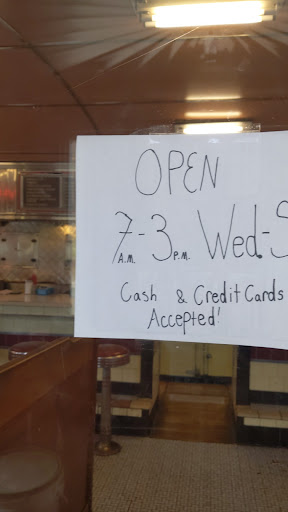 OPEN
7 A.M. - 3 P.M. Wed.-S
Cash & Credit Cards
Accepted!